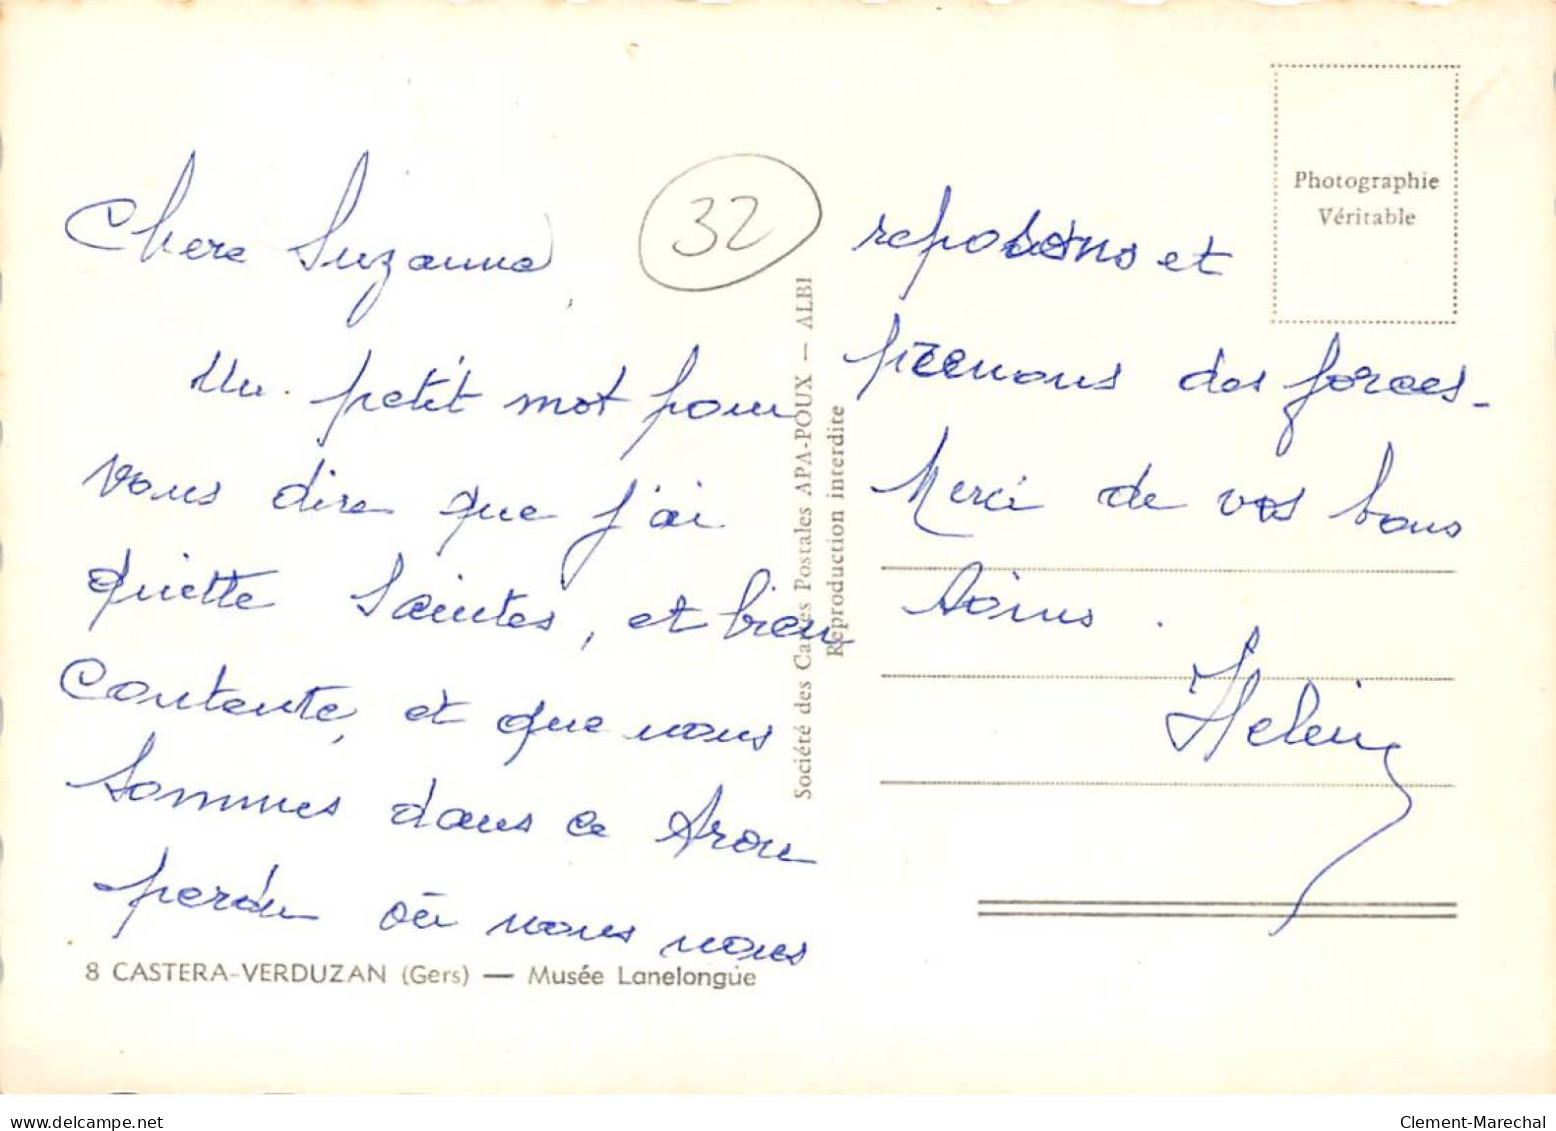 Chere Suzanne,
32
Un petit mot pour
vous dire que j'ai
quitte Saintes, et bien
Contente, et que nous
sommes dans ce trou
perdu où nous nous
reposons et
prenons des forces -
Merci de vos bons
soins.
Helein
Photographie
Véritable
Société des Cartes Postales APA-POUX — ALBI
Reproduction interdite
8 CASTERA-VERDUZAN (Gers) — Musée Lanelongue
www.delcampe.net
Clement-Marechal